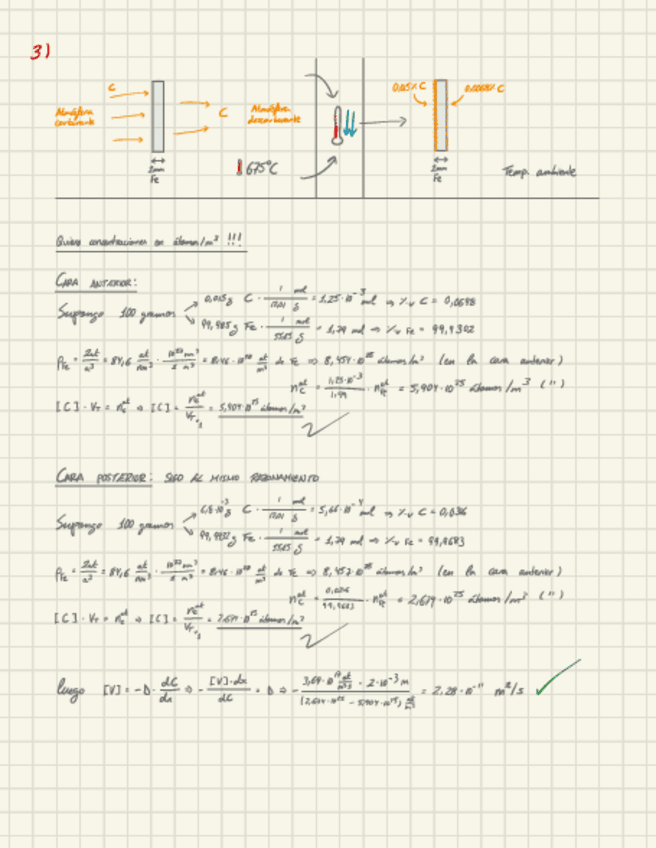 3)
C
Atmósfera carburante
C
Atmósfera decarburante
2mm
Fe
675°C
0,015% C
0,0068% C
2mm
Fe
Temp. ambiente
Quiero concentraciones en átomos/m³ !!!
CARA ANTERIOR:
Supongo 100 gramos
0,015g C · 1 mol / 12,01 g = 1,25·10⁻³ mol ⇒ %ₐ C = 0,0698
99,985g Fe · 1 mol / 55,85 g = 1,79 mol ⇒ %ₐ Fe = 99,9302
ρFe = 2at/a³ = 84,6 at/nm³ · 10²⁷ nm³/1 m³ = 8,46·10²⁸ at/m³ de Fe ⇒ 8,454·10²⁸ átomos/m³ (en la cara anterior)
= 1,25·10⁻³/1,79 · = 5,904·10²⁵ átomos/m³ (")
[C]·V = ⇒ [C] = = 5,904·10²⁵ átomos/m³
CARA POSTERIOR: SIGO EL MISMO RAZONAMIENTO
Supongo 100 gramos
6,8·10⁻³g C · 1 mol / 12,01 g = 5,66·10⁻⁴ mol ⇒ %ₐ C = 0,0316
99,9932g Fe · 1 mol / 55,85 g = 1,79 mol ⇒ %ₐ Fe = 99,9683
ρFe = 2at/a³ = 84,6 at/nm³ · 10²⁷ nm³/1 m³ = 8,46·10²⁸ at/m³ de Fe ⇒ 8,457·10²⁸ átomos/m³ (en la cara anterior)
/99,9683 · = 2,674·10²⁵ átomos/m³ (")
[C]·V = ⇒ [C] = = 2,674·10²⁵ átomos/m³
luego [V] = -D · dC/dx ⇒ - [V]·dx/dC = D ⇒ - 3,69·10¹⁹ · 2·10⁻³ m / (2,674·10²⁵ - 5,904·10²⁵) at/m³ = 2,28·10⁻¹¹ m²/s